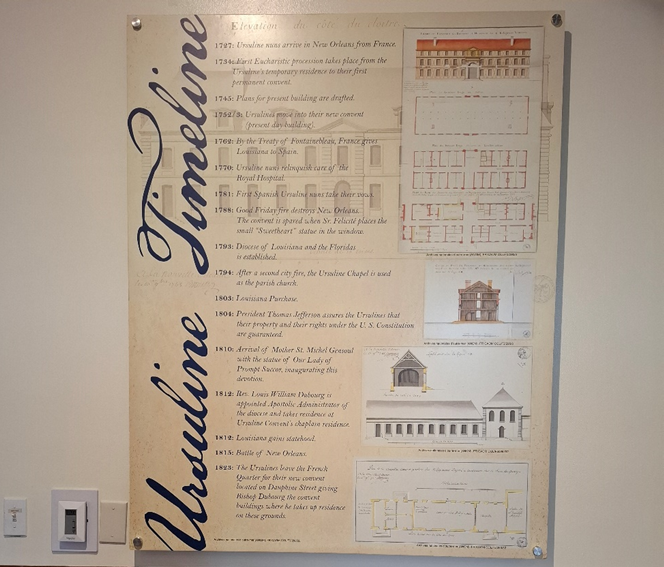 Ursuline Timeline
Elevation du côté du cloître
1727: Ursuline nuns arrive in New Orleans from France.
1734: First Eucharistic procession takes place from the
Ursuline's temporary residence to their first
permanent convent.
1745: Plans for present building are drafted.
1752/3: Ursulines move into their new convent
(present day building).
1762: By the Treaty of Fontainebleau, France gives
Louisiana to Spain.
1770: Ursuline nuns relinquish care of the
Royal Hospital.
1781: First Spanish Ursuline nuns take their vows.
1788: Good Friday fire destroys New Orleans.
The convent is spared when Sr. Felicité places the
small "Sweetheart" statue in the window.
1793: Diocese of Louisiana and the Floridas
is established.
1794: After a second city fire, the Ursuline Chapel is used
as the parish church.
1803: Louisiana Purchase.
1804: President Thomas Jefferson assures the Ursulines that
their property and their rights under the U. S. Constitution
are guaranteed.
1810: Arrival of Mother St. Michel Gensoul
with the statue of Our Lady of
Prompt Succor, inaugurating this
devotion.
1812: Rev. Louis William Dubourg is
appointed Apostolic Administrator of
the diocese and takes residence at
Ursuline Convent's chaplain residence.
1812: Louisiana gains statehood.
1815: Battle of New Orleans.
1823: The Ursulines leave the French
Quarter for their new convent
located on Dauphine Street giving
Bishop Dubourg the convent
buildings where he takes up residence
on these grounds.